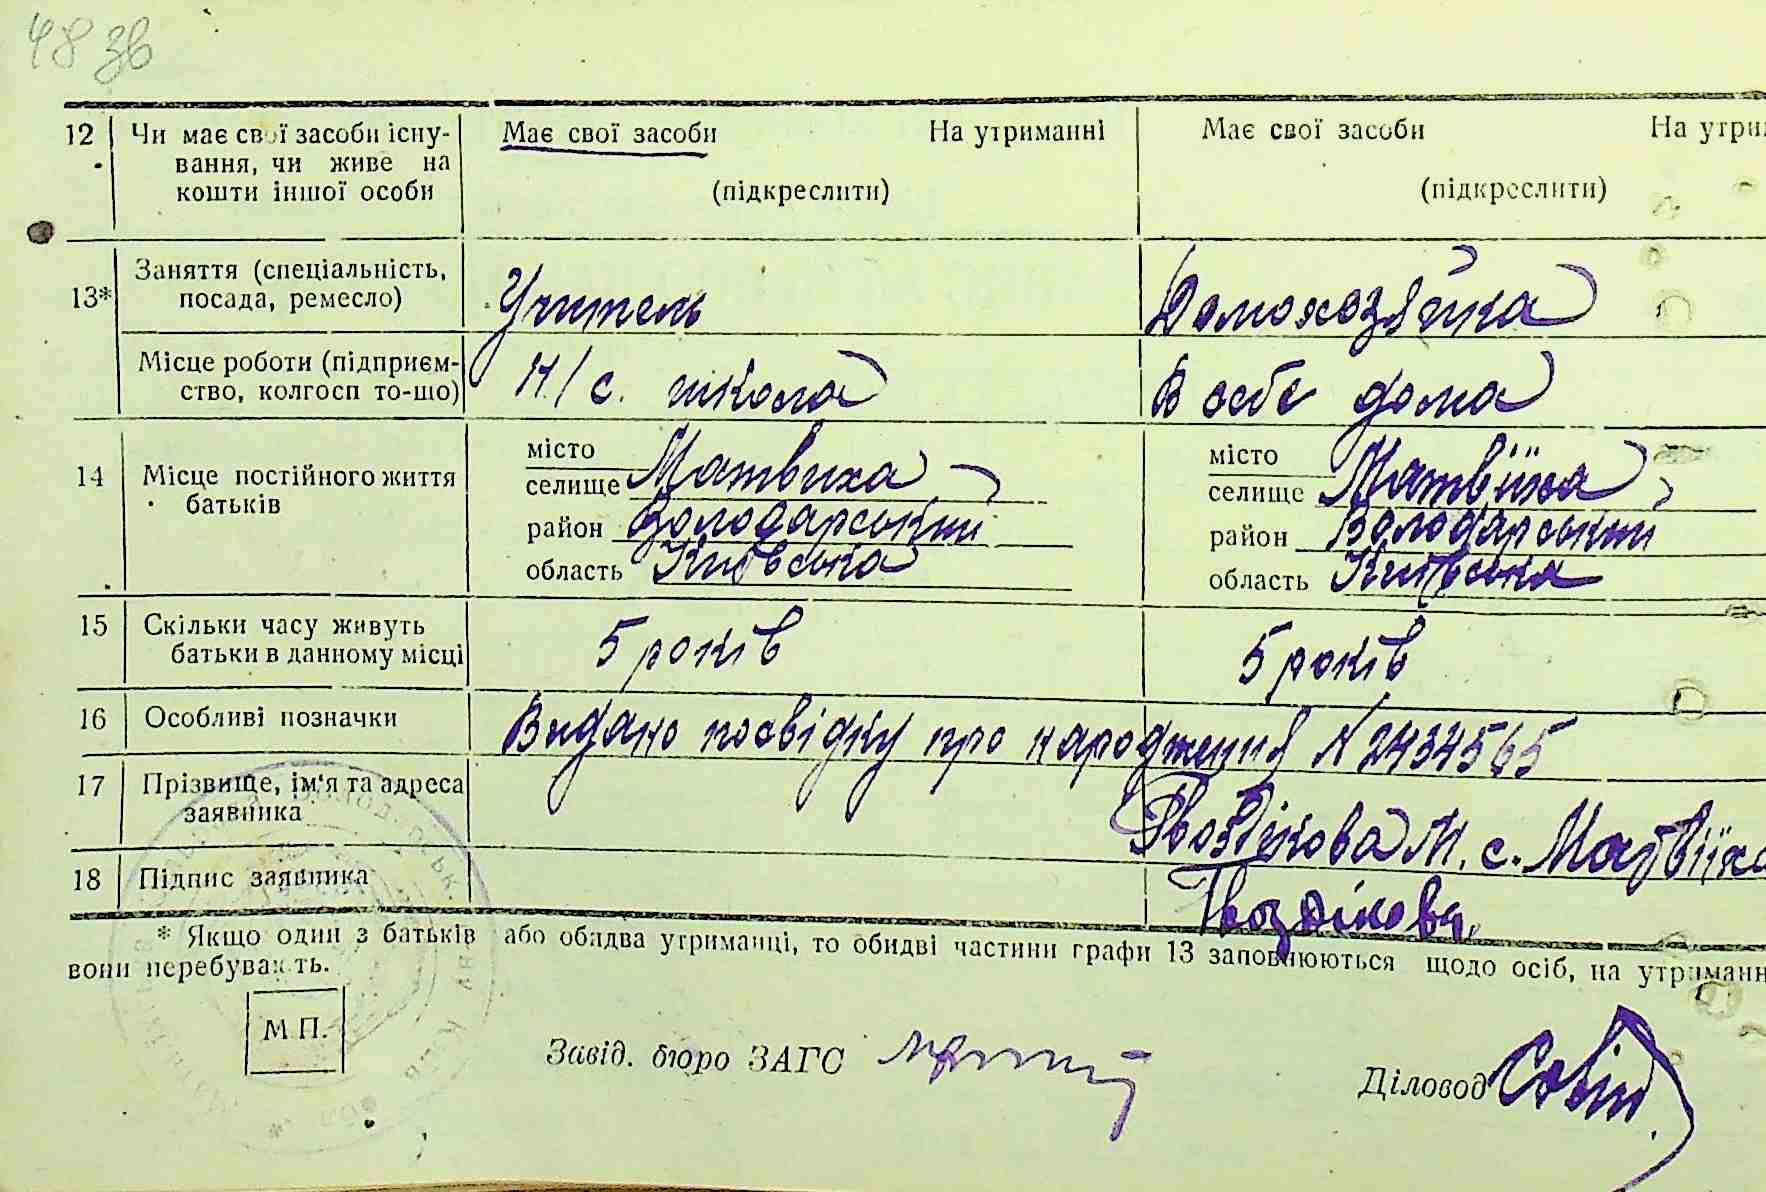 48 зв
12 Чи має свої засоби існу-
вання, чи живе на
кошти іншої особи
Має свої засоби На утриманні
(підкреслити)
Має свої засоби На утрим
(підкреслити)
13*
Заняття (спеціальність,
посада, ремесло)
Учитель
Домохозяйка
Місце роботи (підприєм-
ство, колгосп то-що)
Н/с. школа
В себе дома
14 Місце постійного життя
батьків
місто
селище Матвиха
район Володарський
область Київська
місто
селище Матвіїха
район Володарський
область Київська
15 Скільки часу живуть
батьки в данному місці
5 років
5 років
16 Особливі позначки
Видано посвідку про народження N 2434565
17 Прізвище, ім'я та адреса
заявника
Гвоздікова М. с. Матвіїха
18 Підпис заявника
Гвоздікова
* Якщо один з батьків або обидва утриманці, то обидві частини графи 13 заповнюються щодо осіб, на утриманн
вони перебувають.
М.П.
Завід. бюро ЗАГС
Діловод